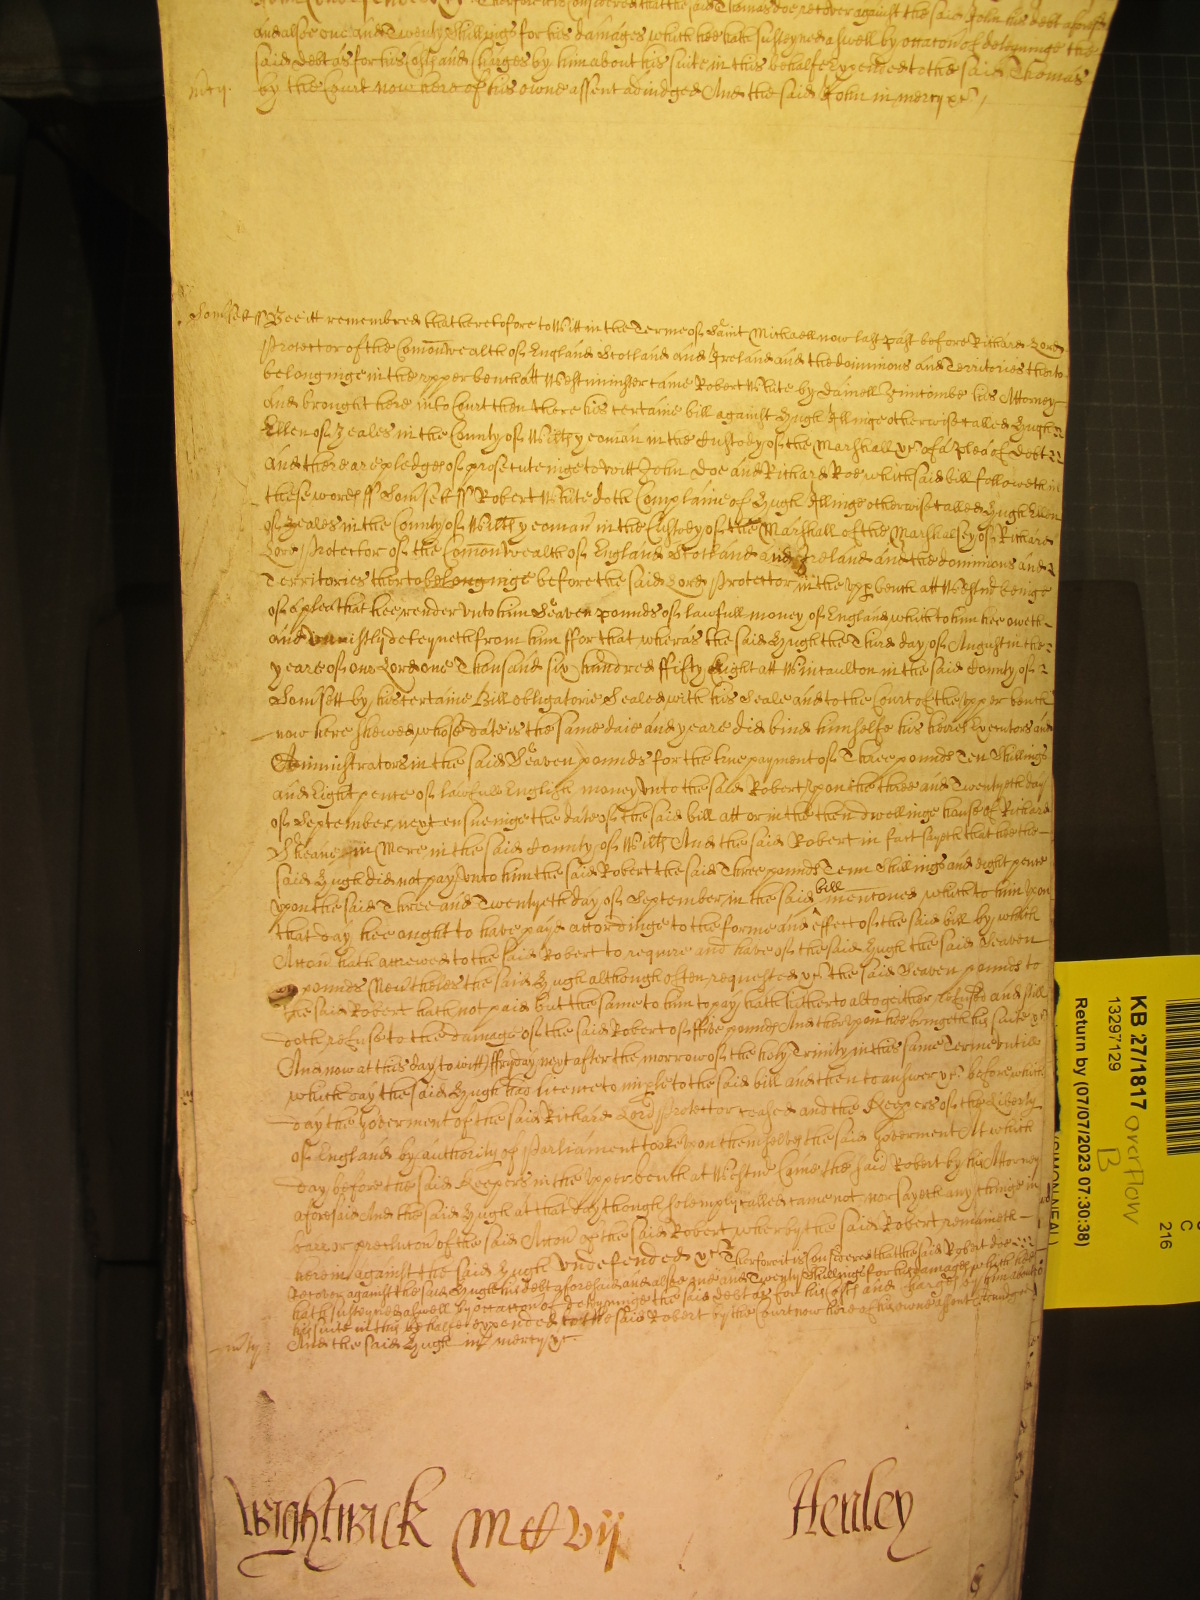 Therfore it is Considered that the said Thomas doe recover against the said John his debt aforesaid
and alsoe one and Twenty shillings for his damages which hee hath susteyned aswell by occacon of deteyninge the
said debt as for his Costs and Charges by him about his suite in this behalfe expended to the said Thomas
mcy. by the Court now here of his owne assent adiudged And the said John in mercy &c
Somsett ss Bee itt remembred that heretofore to Witt in the Terme of Saint Michaell now last past before Richard Lord
Protector of the Comonwealth of England Scotland and Ireland and the dominions and Territories therto
belonginge in the upper bench att Westminster came Robert White by Daniell his Attorney
And brought here into Court then there his certaine bill against Hugh Illinge otherwise called Hugh
Ellen of Zeales in the County of Wilts yeoman in the Custody of the Marshall &c of a Plea of Debt
And there are pledges of prosecuteinge to witt John Doe and Richard Roe which said bill followeth in
these words ss Somsett ss Robert White doth Complaine of Hugh Illinge otherwise called Hugh Ellen
of Zeales in the County of Wilts yeoman in the Custody of the Marshall of the Marshalsey of Richard
Lord Protector of the Comonwealth of England Scotland and Ireland and the dominions and
Territories therto belonginge before the said Lord Protector in the Upp bench att Westmr beinge
of a plea that hee render vnto him Seaven pounds of lawfull money of England which to him hee oweth
and vniustly deteyneth from him ffor that wheras the said Hugh the Third day of August in the
yeare of our Lord one Thousand six hundred ffifty Eight att Wincaulton in the said County of
Somsett by his certaine Bill obligatorie Sealed with his Seale and to the Court of the Upper bench
now here shewed whose date is the same daie and yeare did bind himselfe his heires Executors and
Administrators in the said Seaven pounds for the true payment of Three pounds Ten Shillings
and Eight pence of lawfull English money vnto the said Robert vpon the three and Twentyeth day
of September next ensueinge the date of the said bill att or in the then dwellinge house of Richard
in Mere in the said County of Wilts And the said Robert in fact sayeth that hee the
said Hugh did not pay vnto him the said Robert the said Three pounds Tenn Shillings and Eight pence
vpon the said Three and Twentyeth day of September in the said bill mentoned which to him vpon
that day hee ought to have payd accordinge to the forme and effect of the said bill by which
Accon hath accrewed to the said Robert to require and have of the said Hugh the said Seaven
pounds Nevtheles the said Hugh although often requested &c the said Seaven pounds to
the said Robert hath not paid but the same to him to pay hath hitherto altogeither refused and still
doth refuse to the damage of the said Robert of ffive pounds And thervpon hee bringeth his suite &c
And now at this day to witt ffryday next after the morrow of the holy Trinity in this same Terme vntill
which day the said Hugh had licence to imple to the said bill and then to answer &c before which
day the Goverment of the said Richard Lord Protector ceased and the Keepers of the Liberty
of England by authority of Parliament tooke vpon themselves the said Goverment At which
day before the said Keepers in the Vpper bench at Westmr Came the said Robert by his Attorney
aforesaid And the said Hugh at that day though solemply called came not nor sayeth any thinge in
barr or preclucon of the said Accon of the said Robert wherby the said Robert remaineth
therein against the said Hugh vndefended &c Therfore it is Considered that the said Robert doe
Recover against the said Hugh his debt aforesaid and alsoe one and Twenty Shillings for his damages which hee
hath susteyned aswell by occacon of deteyninge the said debt as for his Costs and Charges by him about
his suite in this behalfe expended to the said Robert by the Court now here of his owne assent adiudged
mcy And the said Hugh in mercy &c
Wightwick M C vij Henley
8
KB 27/1817 overflow
B
13297129
Return by (07/07/2023 07:30:38)
(SIMON NEAL)
C
216